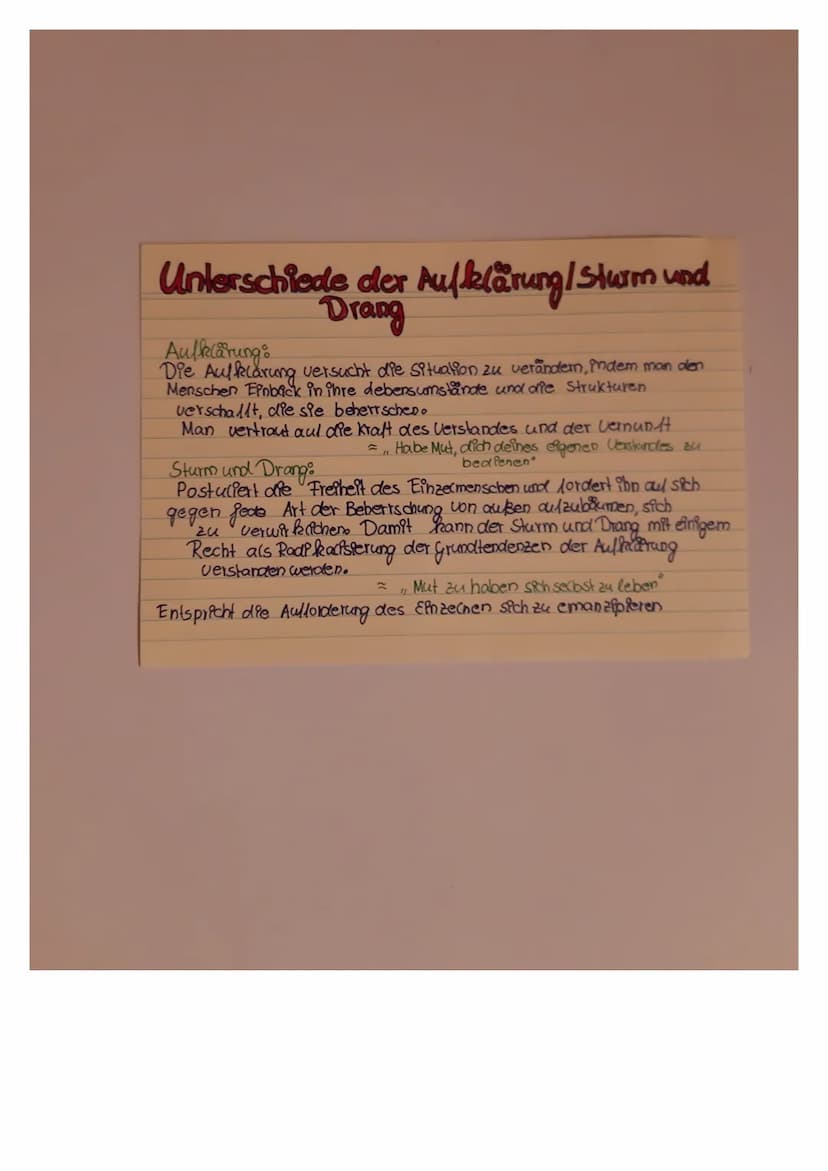 Unterschiede der Aufklärung/Sturm und
Drang
Aufklärung:
Die Aufklärung versucht die Situation zu verändern, indem man den
Menschen Einblick in ihre Lebensumstände und die Strukturen
verschafft, die sie beherrschen.
Man vertraut auf die Kraft des Verstandes und der Vernunft
≈ „Habe Mut, dich deines eigenen Verstandes zu
bedienen"
Sturm und Drang:
Postuliert die Freiheit des Einzelmenschen und fordert ihn auf sich
gegen jede Art der Beherrschung von außen aufzubäumen, sich
zu verwirklichen. Damit kann der Sturm und Drang mit einigem
Recht als Radikalisierung der Grundtendenzen der Aufklärung
verstanden werden.
≈ „Mut zu haben sich selbst zu leben"
Entspricht die Aufforderung des Einzelnen sich zu emanzipieren